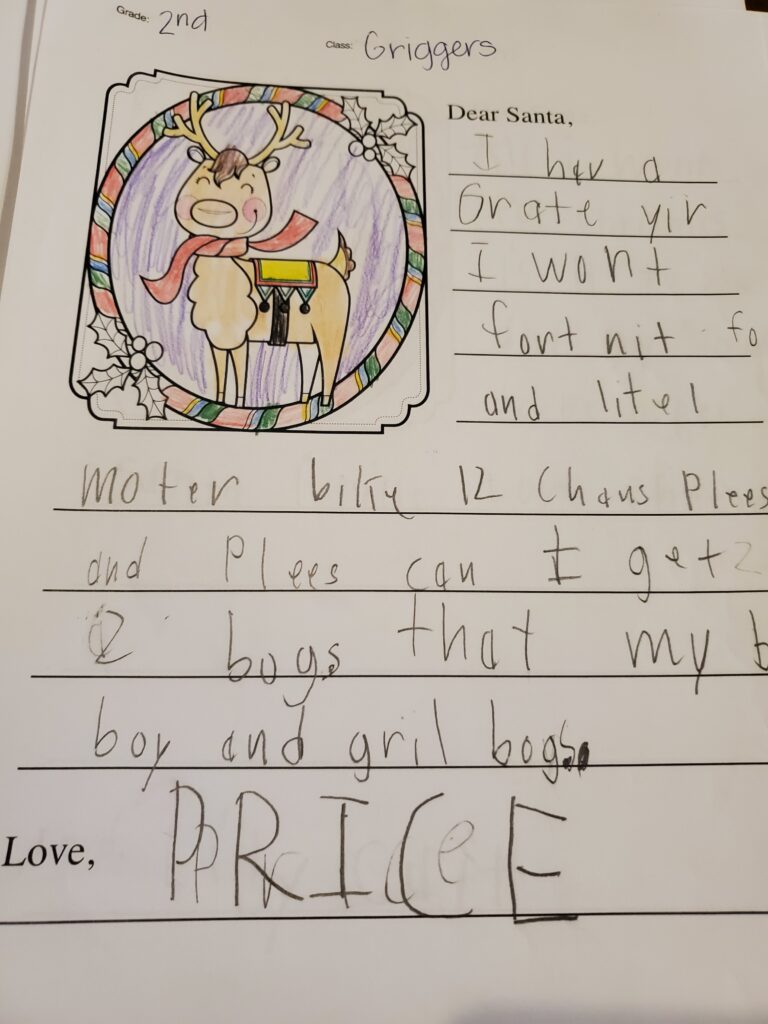 Grade: 2nd
Class: Griggers
Dear Santa,
I hav a
Grate yir
I wont
fort nit fo
and litel
moter bike 12 Chans Plees
and Plees can I get 2
2 bogs that my b
boy and gril bogs.
Love, PRICE